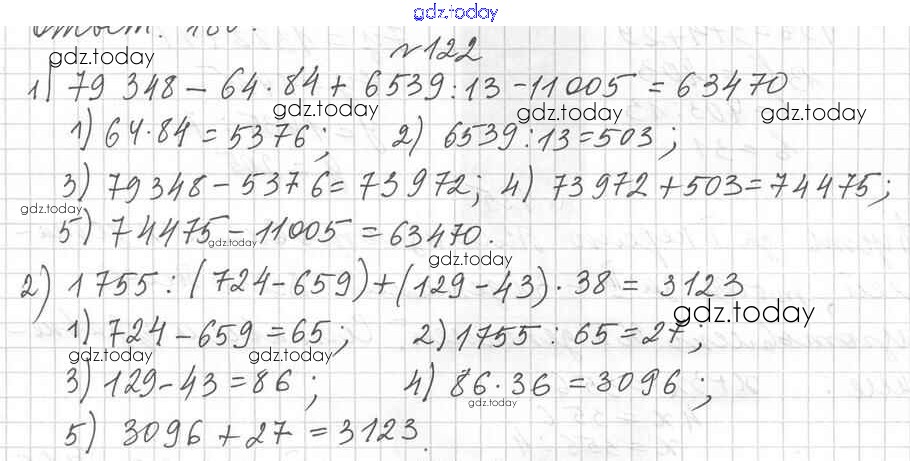 gdz.today
Ответ: 180.
№122
gdz.today
1) 79 348 - 64 · 84 + 6539 : 13 - 11005 = 63470
gdz.today gdz.today gdz.today
1) 64 · 84 = 5376; 2) 6539 : 13 = 503;
3) 79348 - 5376 = 73972; 4) 73972 + 503 = 74475;
gdz.today
5) 74475 - 11005 = 63470.
gdz.today gdz.today
2) 1755 : (724 - 659) + (129 - 43) · 38 = 3123
gdz.today
1) 724 - 659 = 65; 2) 1755 : 65 = 27;
gdz.today gdz.today
3) 129 - 43 = 86; 4) 86 · 36 = 3096;
gdz.today
5) 3096 + 27 = 3123.